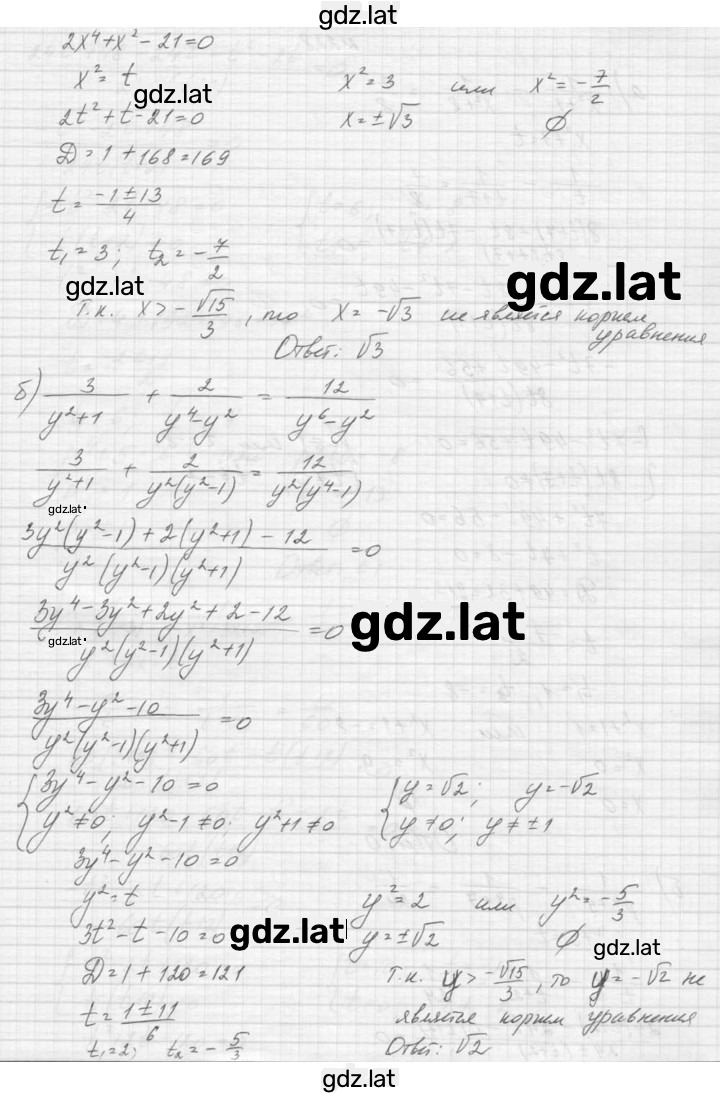 gdz.lat
2x⁴+x²-21=0
x²=t
gdz.lat
2t²+t-21=0
D=1+168=169
t=(-1±13)/4
t₁=3; t₂=-7/2
x²=3 или x²=-7/2
x=±√3 ∅
gdz.lat
gdz.lat
Т.к. x>-√15/3, то x=-√3 не является корнем
уравнения
Ответ: √3
б) 3/(y²+1) + 2/(y⁴-y²) = 12/(y⁶-y²)
3/(y²+1) + 2/(y²(y²-1)) = 12/(y²(y⁴-1))
gdz.lat
(3y²(y²-1)+2(y²+1)-12)/(y²(y²-1)(y²+1)) =0
(3y⁴-3y²+2y²+2-12)/(y²(y²-1)(y²+1)) =0
gdz.lat
gdz.lat
(3y⁴-y²-10)/(y²(y²-1)(y²+1)) =0
{3y⁴-y²-10=0
y²≠0; y²-1≠0; y²+1≠0
{y=√2; y=-√2
y≠0; y≠±1
3y⁴-y²-10=0
y²=t
3t²-t-10=0
gdz.lat
D=1+120=121
t=(1±11)/6
t₁=2; t₂=-5/3
y²=2 или y²=-5/3
y=±√2 ∅
gdz.lat
Т.к. y>-√15/3, то y=-√2 не
является корнем уравнения
Ответ: √2
gdz.lat